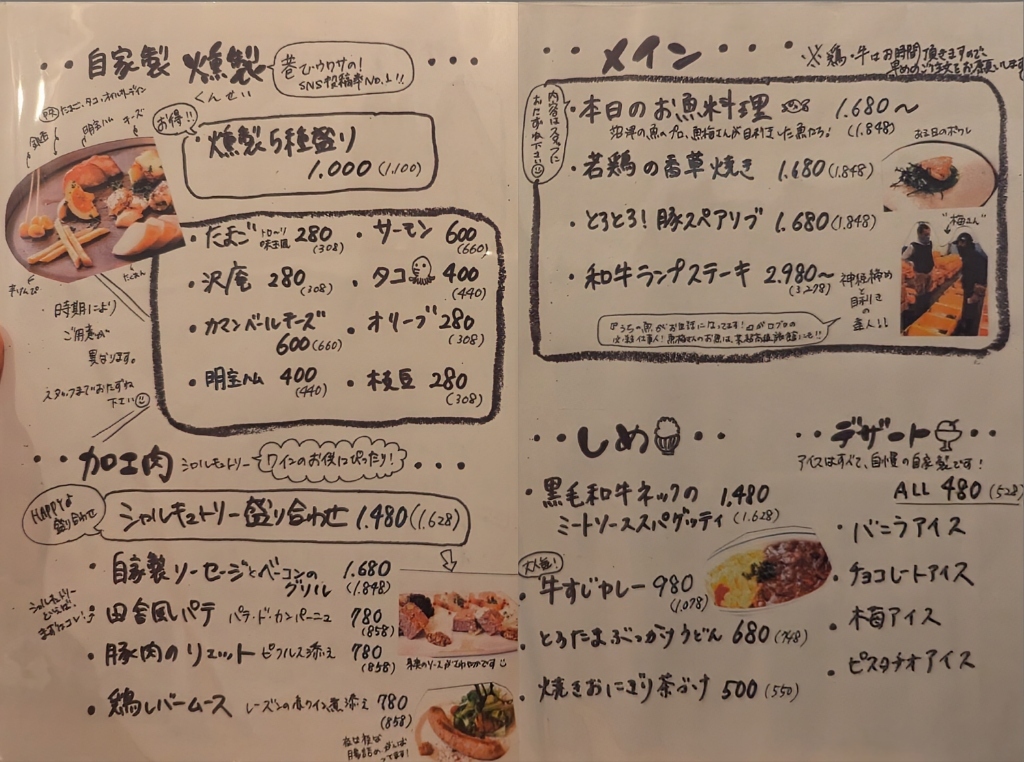 自家製 燻製
くんせい
巷でウワサの!
SNS投稿率No.1!!
チーズ
明宝ハム
お得!!
燻製5種盛り
1.000(1.100)
たまご トローリ味玉風 280
(308)
サーモン 600
(660)
沢庵 280
(308)
タコ 400
(440)
カマンベールチーズ
600(660)
オリーブ 280
(308)
明宝ハム 400
(440)
枝豆 280
(308)
たくあん
時期により
ご用意が
異なります。
スタッフまでおたずね
下さい
加工肉 シャルキュトリー
ワインのお供にぴったり!
HAPPYな
盛り合わせ
シャルキュトリー盛り合わせ 1.480(1.628)
自家製ソーセージとベーコンの
グリル
1.680
(1.848)
シャルキュトリー
といえば!
まずはコレ!
田舎風パテ パテ・ド・カンパーニュ 780
(858)
豚肉のリエット ピクルス添え 780
(858)
鶏レバームース レーズンの赤ワイン煮添え 780
(858)
メイン
※鶏・牛はお時間頂きますので、
早めのご注文をお願いします
内容はスタッフに
おたずね下さい
本日のお魚料理 1.680〜
(1.848)
沼津の魚のプロ、魚梅さんが目利きした魚たち!
若鶏の香草焼き 1.680(1.848)
とろとろ!豚スペアリブ 1.680(1.848)
和牛ランプステーキ 2.980〜
(3.278)
"梅さん"
神経締め
と
目利き
の
達人!!
しめ
黒毛和牛ネックの 1.480
ミートソーススパゲッティ (1.628)
大人気!
牛すじカレー 980
(1.078)
とろたまぶっかけうどん 680(748)
焼きおにぎり茶づけ 500(550)
デザート
アイスはすべて、自慢の自家製です!
ALL 480(528)
バニラアイス
チョコレートアイス
木苺アイス
ピスタチオアイス